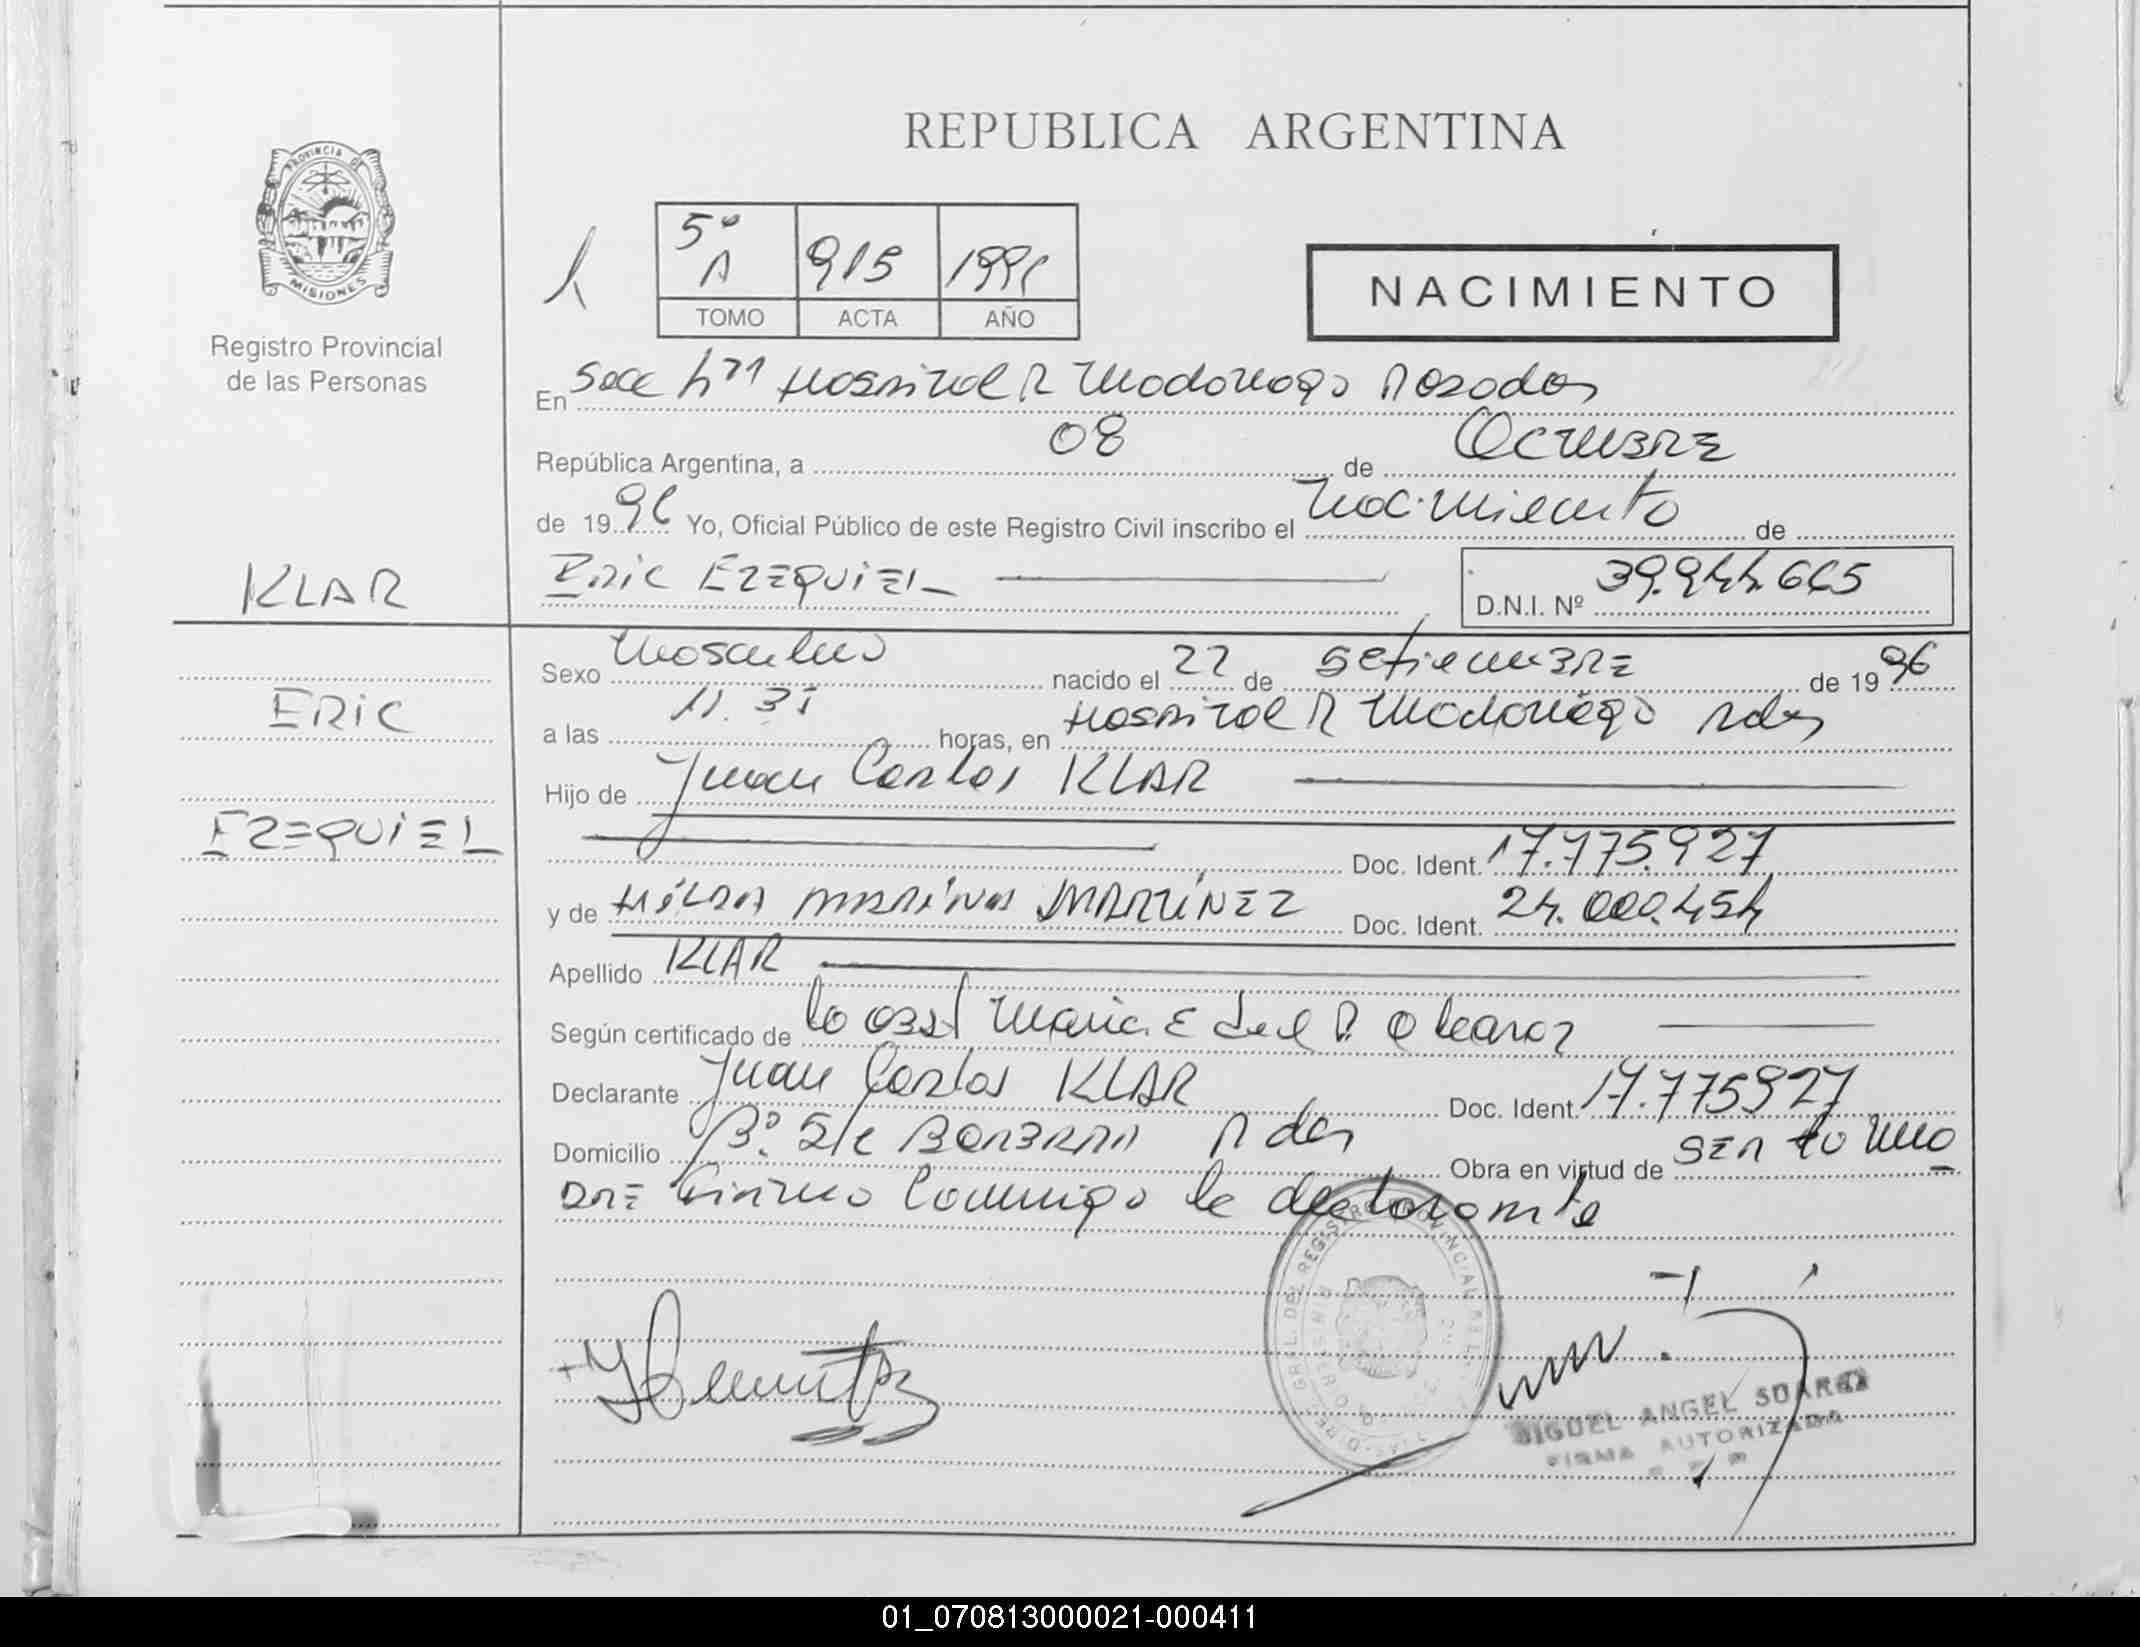 REPUBLICA ARGENTINA
PROVINCIA DE
MISIONES
Registro Provincial
de las Personas
5º
A 915 1996
TOMO ACTA AÑO
NACIMIENTO
En Secc Hospital R Madariaga Posadas
República Argentina, a 08 de Octubre
de 1996 Yo, Oficial Público de este Registro Civil inscribo el Nacimiento de
ERIC EZEQUIEL
D.N.I. Nº 39.944.665
KLAR
ERIC
EZEQUIEL
Sexo Masculino nacido el 22 de Setiembre de 1996
a las 11.35 horas, en Hospital R Madariaga Pdas
Hijo de Juan Carlos KLAR
Doc. Ident. 17.775.927
y de HILDA MARINA MARTÍNEZ Doc. Ident. 24.000.454
Apellido KLAR
Según certificado de la obst Maria E del P.
Declarante Juan Carlos KLAR Doc. Ident. 17.775927
Domicilio Bº. Sta BARBARA Pdas Obra en virtud de SER
DRE firma conmigo la declarante
MIGUEL ANGEL SUAREZ
FIRMA AUTORIZADA
01_070813000021-000411